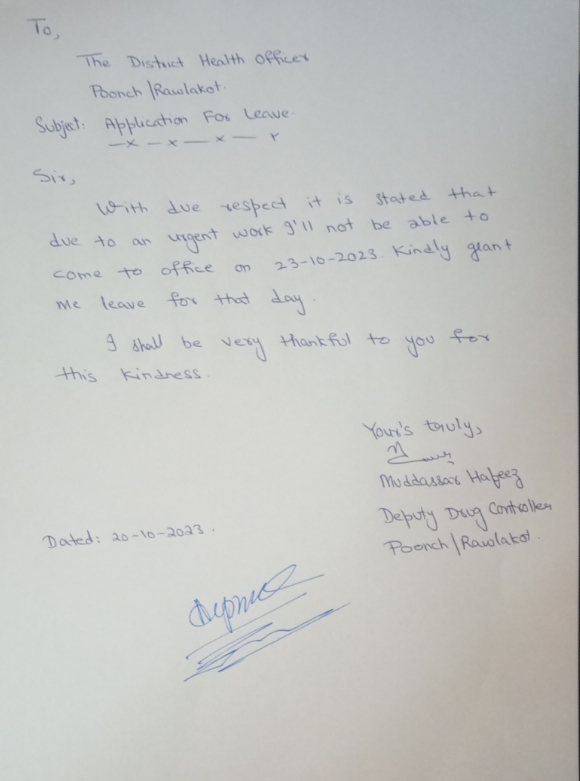 To,
The District Health Officer
Poonch/Rawlakot.
Subject: Application For Leave.
—x—x—x—x
Sir,
With due respect it is stated that
due to an urgent work I'll not be able to
come to office on 23-10-2023. Kindly grant
me leave for that day.
I shall be very thankful to you for
this kindness.
Your's truly,
Muddassar Hafeez
Deputy Drug Controller
Poonch/Rawlakot.
Dated: 20-10-2023.